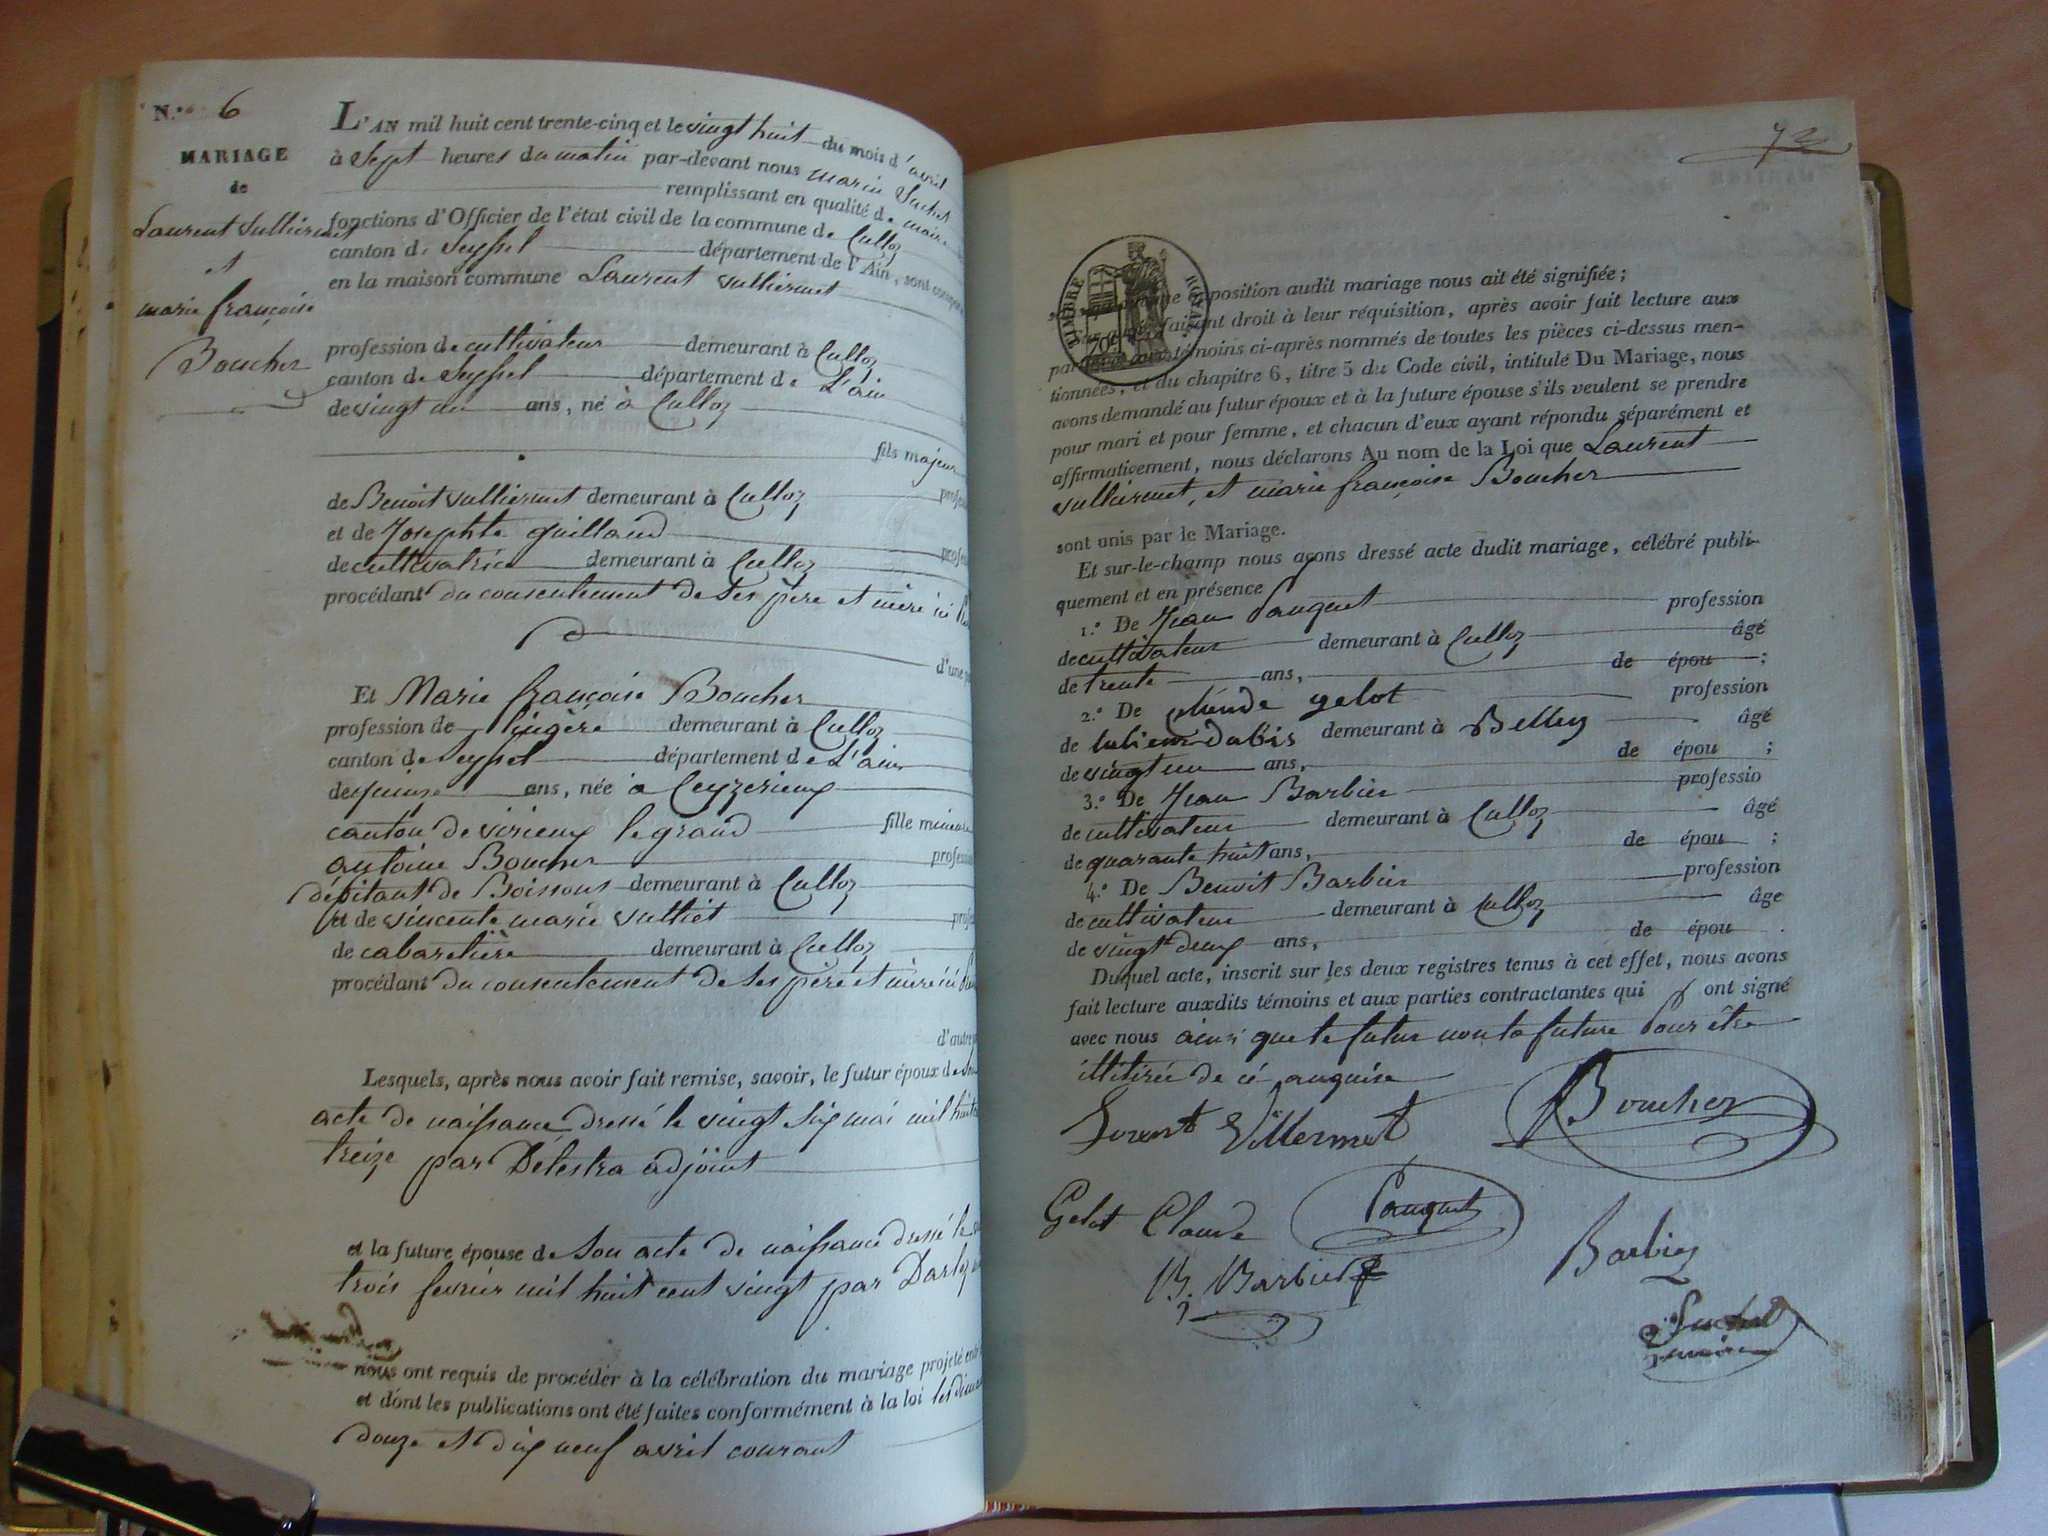 N.º 6
MARIAGE
de
Laurent Vulliermet
et
marie françoise
Boucher
L'AN mil huit cent trente-cinq et le vingt huit du mois d'avril
à Sept heures du matin par-devant nous marin Suchet
remplissant en qualité de maire
fonctions d'Officier de l'état civil de la commune de Culloz
canton de Seyssel département de l'Ain, sont
en la maison commune Laurent Vulliermet
profession de cultivateur demeurant à Culloz
canton de Seyssel département de L'ain
de vingt un ans, né à Culloz
fils majeur
de Benoit Vulliermet demeurant à Culloz
et de Josephte guilland
de cultivatrice demeurant à Culloz
procédant du consentement de ses père et mère ici
d'une
Et Marie françoise Boucher
profession de lingère demeurant à Culloz
canton de Seyssel département de L'ain
de quinze ans, née à Ceyzerieux
canton de virieux le grand fille mineure
antoine Boucher
débitant de Boissons demeurant à Culloz
et de vincente marie vulliet
de cabaretière demeurant à Culloz
procédant du consentement de ses père et mère ici
d'autre
Lesquels, après nous avoir fait remise, savoir, le futur époux de son
acte de naissance dressé le vingt six mai mil huit
treize par Délestra adjoint
et la future épouse de son acte de naissance dressé le
trois fevrier mil huit cent vingt par
nous ont requis de procéder à la célébration du mariage projeté
et dont les publications ont été faites conformément à la loi les
douze et dix neuf avril courant
72
TIMBRE ROYAL
opposition audit mariage nous ait été signifiée;
faisant droit à leur réquisition, après avoir fait lecture aux
témoins ci-après nommés de toutes les pièces ci-dessus men-
tionnées, et du chapitre 6, titre 5 du Code civil, intitulé Du Mariage, nous
avons demandé au futur époux et à la future épouse s'ils veulent se prendre
pour mari et pour femme, et chacun d'eux ayant répondu séparément et
affirmativement, nous déclarons Au nom de la Loi que Laurent
vulliermet, et marie françoise Boucher
sont unis par le Mariage.
Et sur-le-champ nous avons dressé acte dudit mariage, célébré publi-
quement et en présence
1.º De Jean Pauquet profession
de cultivateur demeurant à Culloz âgé
de trente ans, de épou ;
2.º De gelot profession
de demeurant à Belley âgé
de vingt un ans, de épou ;
3.º De Jean Barbier professio
de cultivateur demeurant à Culloz âgé
de quarante huit ans, de épou ;
4.º De Benoit Barbier profession
de cultivateur demeurant à Culloz âge
de vingt deux ans, de épou .
Duquel acte, inscrit sur les deux registres tenus à cet effet, nous avons
fait lecture auxdits témoins et aux parties contractantes qui ont signé
avec nous ainsi que le futur non la future Pour être
illitirée de ce anquise
Villermet
Boucher
Gelot Claude
Pauquet
B. Barbier
Barbier
Suchet
maire